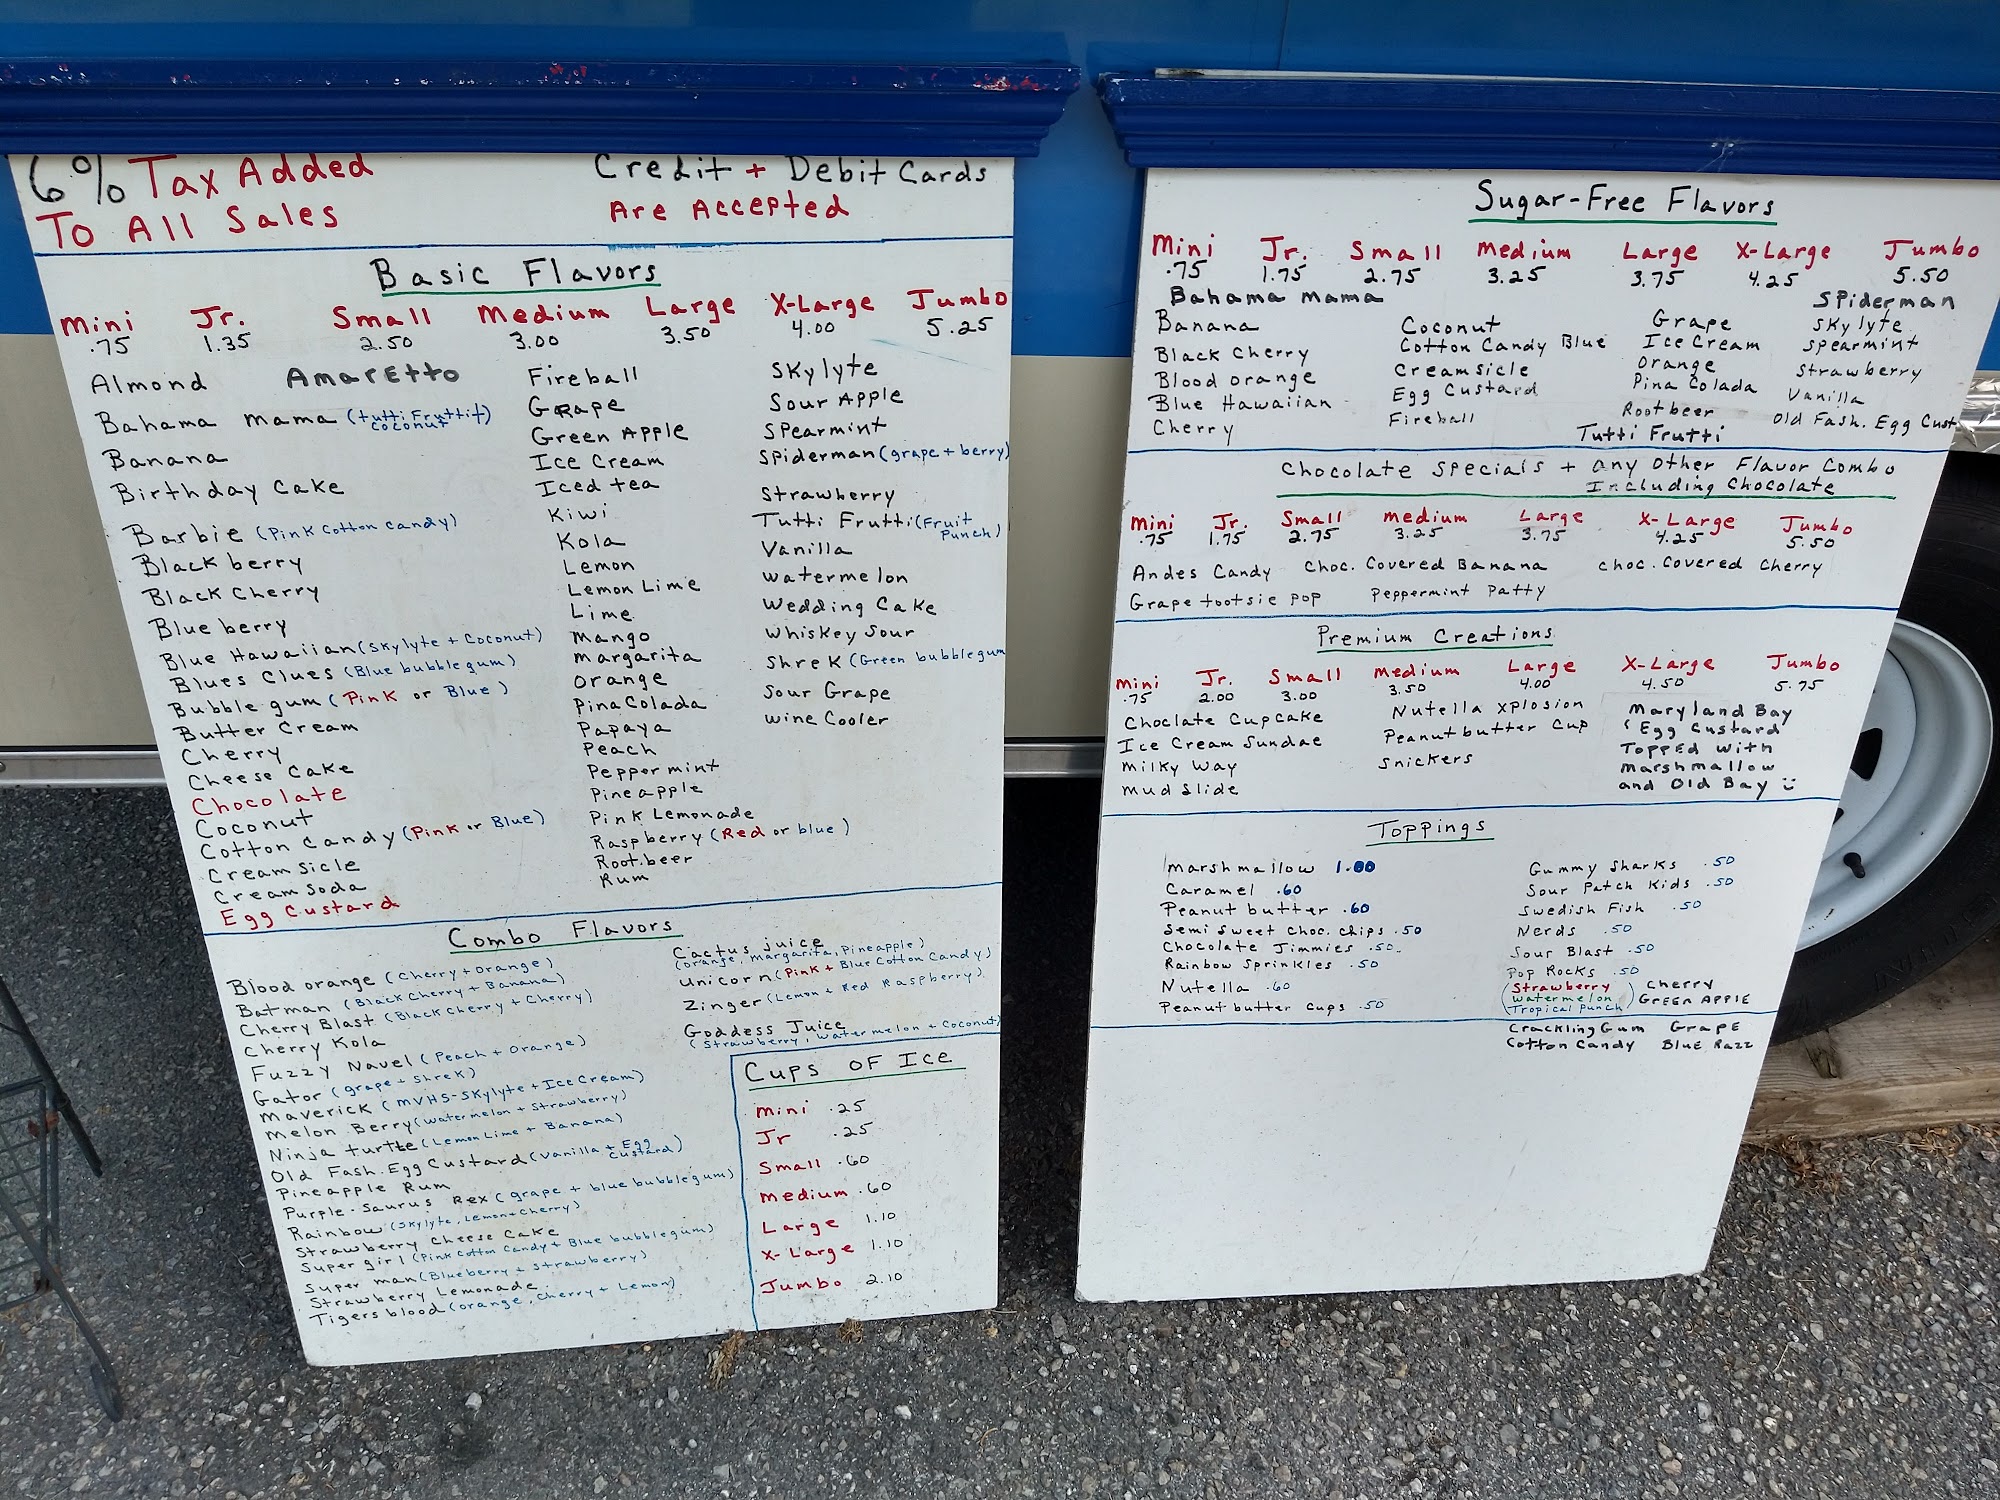 6% Tax Added
To All Sales
Credit + Debit Cards
Are Accepted
Basic Flavors
Mini Jr. Small Medium Large X-Large Jumbo
.75 1.35 2.50 3.00 3.50 4.00 5.25
Almond Amaretto
Bahama Mama (tutti Frutti + coconut)
Banana
Birthday Cake
Barbie (Pink Cotton Candy)
Black berry
Black Cherry
Blue berry
Blue Hawaiian (Skylyte + Coconut)
Blues Clues (Blue bubble gum)
Bubble gum (Pink or Blue)
Butter Cream
Cherry
Cheese Cake
Chocolate
Coconut
Cotton Candy (Pink or Blue)
Cream Sicle
Cream Soda
Egg Custard
Fireball
Grape
Green Apple
Ice Cream
Iced tea
Kiwi
Kola
Lemon
Lemon Lime
Lime
Mango
Margarita
Orange
Pina Colada
Papaya
Peach
Peppermint
Pineapple
Pink Lemonade
Raspberry (Red or blue)
Root.beer
Rum
Skylyte
Sour Apple
Spearmint
Spiderman (grape + berry)
Strawberry
Tutti Frutti (Fruit Punch)
Vanilla
Watermelon
Wedding Cake
Whiskey Sour
Shrek (Green bubblegum
Sour Grape
Wine Cooler
Combo Flavors
Blood orange (Cherry + Orange)
Batman (Black Cherry + Banana)
Cherry Blast (Black Cherry + Cherry)
Cherry Kola
Fuzzy Navel (Peach + Orange)
Gator (grape + Shrek)
Maverick (MVHS-Skylyte + Ice Cream)
Melon Berry (Watermelon + Strawberry)
Ninja turtle (Lemon Lime + Banana)
Old Fash. Egg Custard (Vanilla + Egg Custard)
Pineapple Rum
Purple-Saurus Rex (grape + blue bubblegum)
Rainbow (Skylyte, Lemon + Cherry)
Strawberry Cheese Cake
Super girl (Pink Cotton Candy + Blue bubblegum)
Super man (Blueberry + Strawberry)
Strawberry Lemonade
Tigers blood (orange, Cherry + Lemon)
Cactus juice
(orange, margarita, pineapple)
Unicorn (Pink + Blue Cotton Candy)
Zinger (Lemon + Red Raspberry)
Goddess Juice
(Strawberry, Watermelon + Coconut)
Cups of Ice
Mini .25
Jr .25
Small .60
Medium .60
Large 1.10
X-Large 1.10
Jumbo 2.10
Sugar-Free Flavors
Mini Jr. Small Medium Large X-Large Jumbo
.75 1.75 2.75 3.25 3.75 4.25 5.50
Bahama Mama
Banana
Black Cherry
Blood orange
Blue Hawaiian
Cherry
Coconut
Cotton Candy Blue
Creamsicle
Egg Custard
Fireball
Grape
Ice Cream
Orange
Pina Colada
Rootbeer
Tutti Frutti
Spiderman
Skylyte
Spearmint
Strawberry
Vanilla
Old Fash. Egg Cust
Chocolate Specials + any other Flavor Combo
Including Chocolate
Mini Jr. Small Medium Large X-Large Jumbo
.75 1.75 2.75 3.25 3.75 4.25 5.50
Andes Candy Choc. Covered Banana choc. Covered Cherry
Grape tootsie pop Peppermint Patty
Premium Creations
Mini Jr. Small Medium Large X-Large Jumbo
.75 2.00 3.00 3.50 4.00 4.50 5.75
Choclate Cupcake
Ice Cream Sundae
Milky Way
Mud Slide
Nutella Xplosion
Peanutbutter Cup
Snickers
Maryland Bay
Egg Custard
Topped with
Marshmallow
and Old Bay
Toppings
Marshmallow 1.00
Caramel .60
Peanut butter .60
Semi Sweet Choc. Chips .50
Chocolate Jimmies .50
Rainbow Sprinkles .50
Nutella .60
Peanut butter cups .50
Gummy Sharks .50
Sour Patch Kids .50
Swedish Fish .50
Nerds .50
Sour Blast .50
Pop Rocks .50
(Strawberry Cherry
Watermelon) Green Apple
(Tropical Punch)
Crackling Gum Grape
Cotton Candy Blue Razz